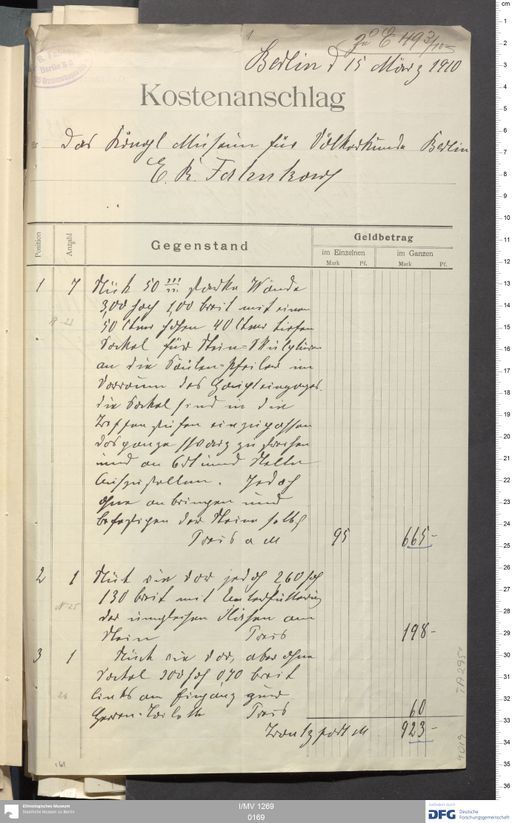 zu E 493/10
Berlin d 15 März 1910
Kostenanschlag
Das Königl Museum für Völkerkunde Berlin
Position
Anzahl
Gegenstand
Geldbetrag
im Einzelnen
im Ganzen
Mark
Pf.
Mark
Pf.
1 7 Stück 50 mm starke Wände
3,00 hoch 1,00 breit mit einem
50 ctmr hohen 40 ctmr tiefen
Sockel für Stein-Skulpturen
an die Säulen-Pfeiler im
Vorraum des Haupteinganges
die Sockel sind in die
Treppenstufen einzupassen
das ganze schwarz zu streichen
und an Ort und Stelle
aufzustellen. Jedoch
ohne anbringen und
befestigen der Steine selbst
Preis a M 95 665-
2 1 Stück wie vor jedoch 260 hoch
130 breit mit
der ungleichen am
Stein Preis 198-
3 1 Stück wie vor, aber ohne
Sockel 200 hoch 070 breit
links am Eingang zur
Herren-Toilette Preis 60
Transport M 923-
I/MV 1269
0169
Ethnologisches Museum
Staatliche Museen zu Berlin
DFG
Deutsche
Forschungsgemeinschaft